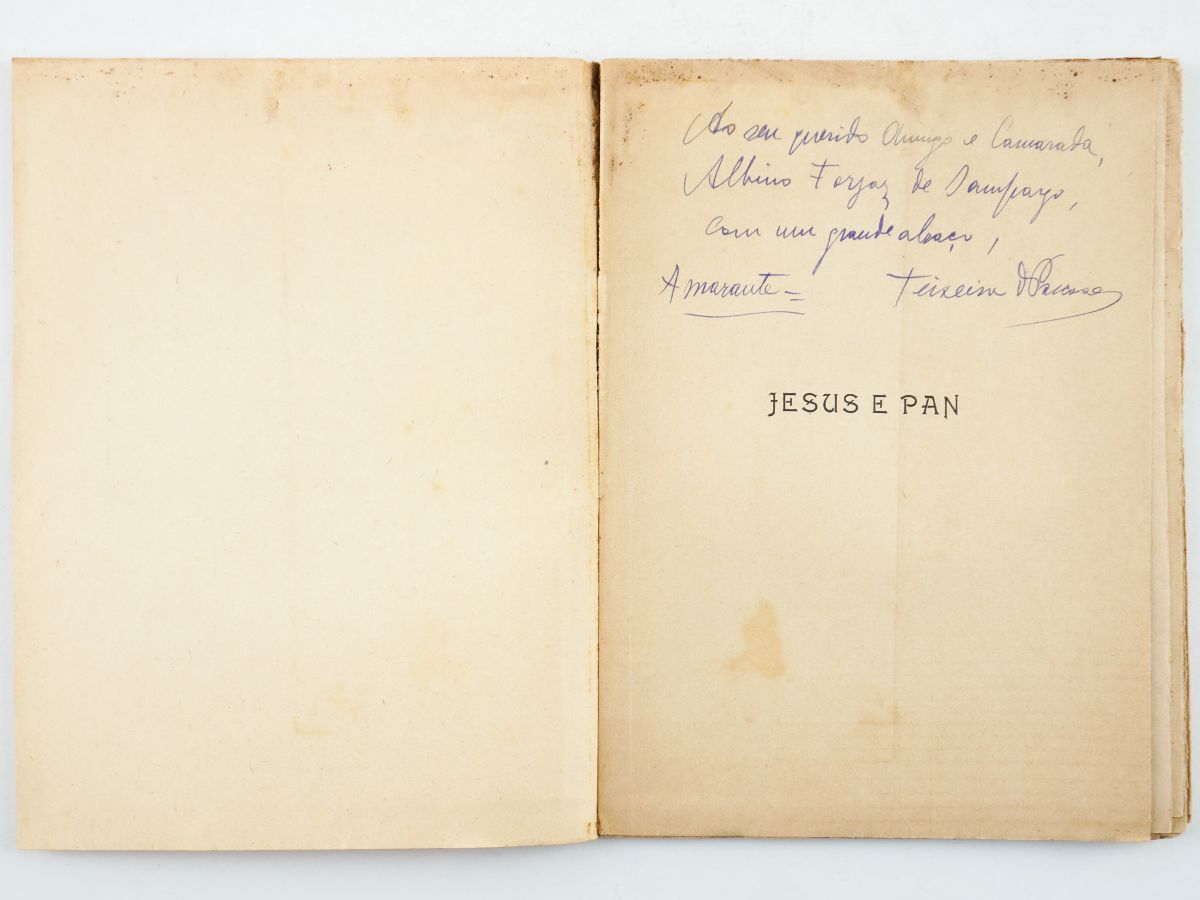 Ao seu querido Amigo e Camarada,
Albino Forjaz de Sampayo,
com um grande abraço,
Amarante = Teixeira de Pascoaes
JESUS E PAN